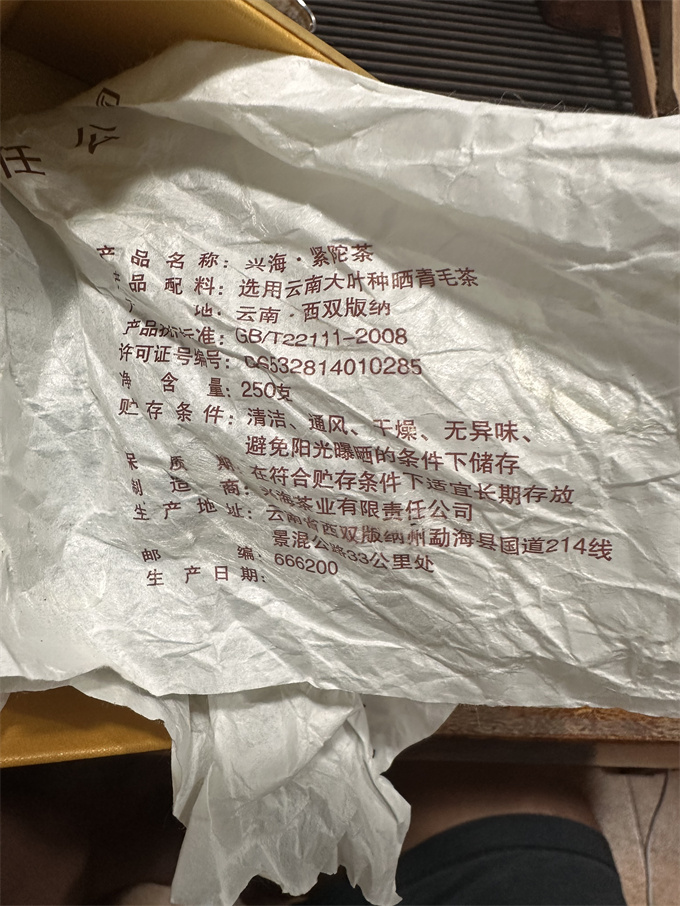 任 公
产品名称：兴海·紧陀茶
品配料：选用云南大叶种晒青毛茶
地：云南·西双版纳
产品标准：GB/T22111-2008
许可证号编号：QS532814010285
净含量：250克
贮存条件：清洁、通风、干燥、无异味、
避免阳光曝晒的条件下储存
保质期：在符合贮存条件下适宜长期存放
制造商：兴海茶业有限责任公司
生产地址：云南省西双版纳州勐海县国道214线
景混公路33公里处
邮编：666200
生产日期：